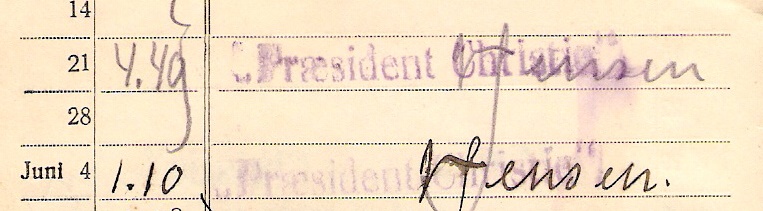 14
21 4.49 „Præsident Christie“ Jensen
28
Juni 4 1.10 „Præsident Christie“ Jensen.